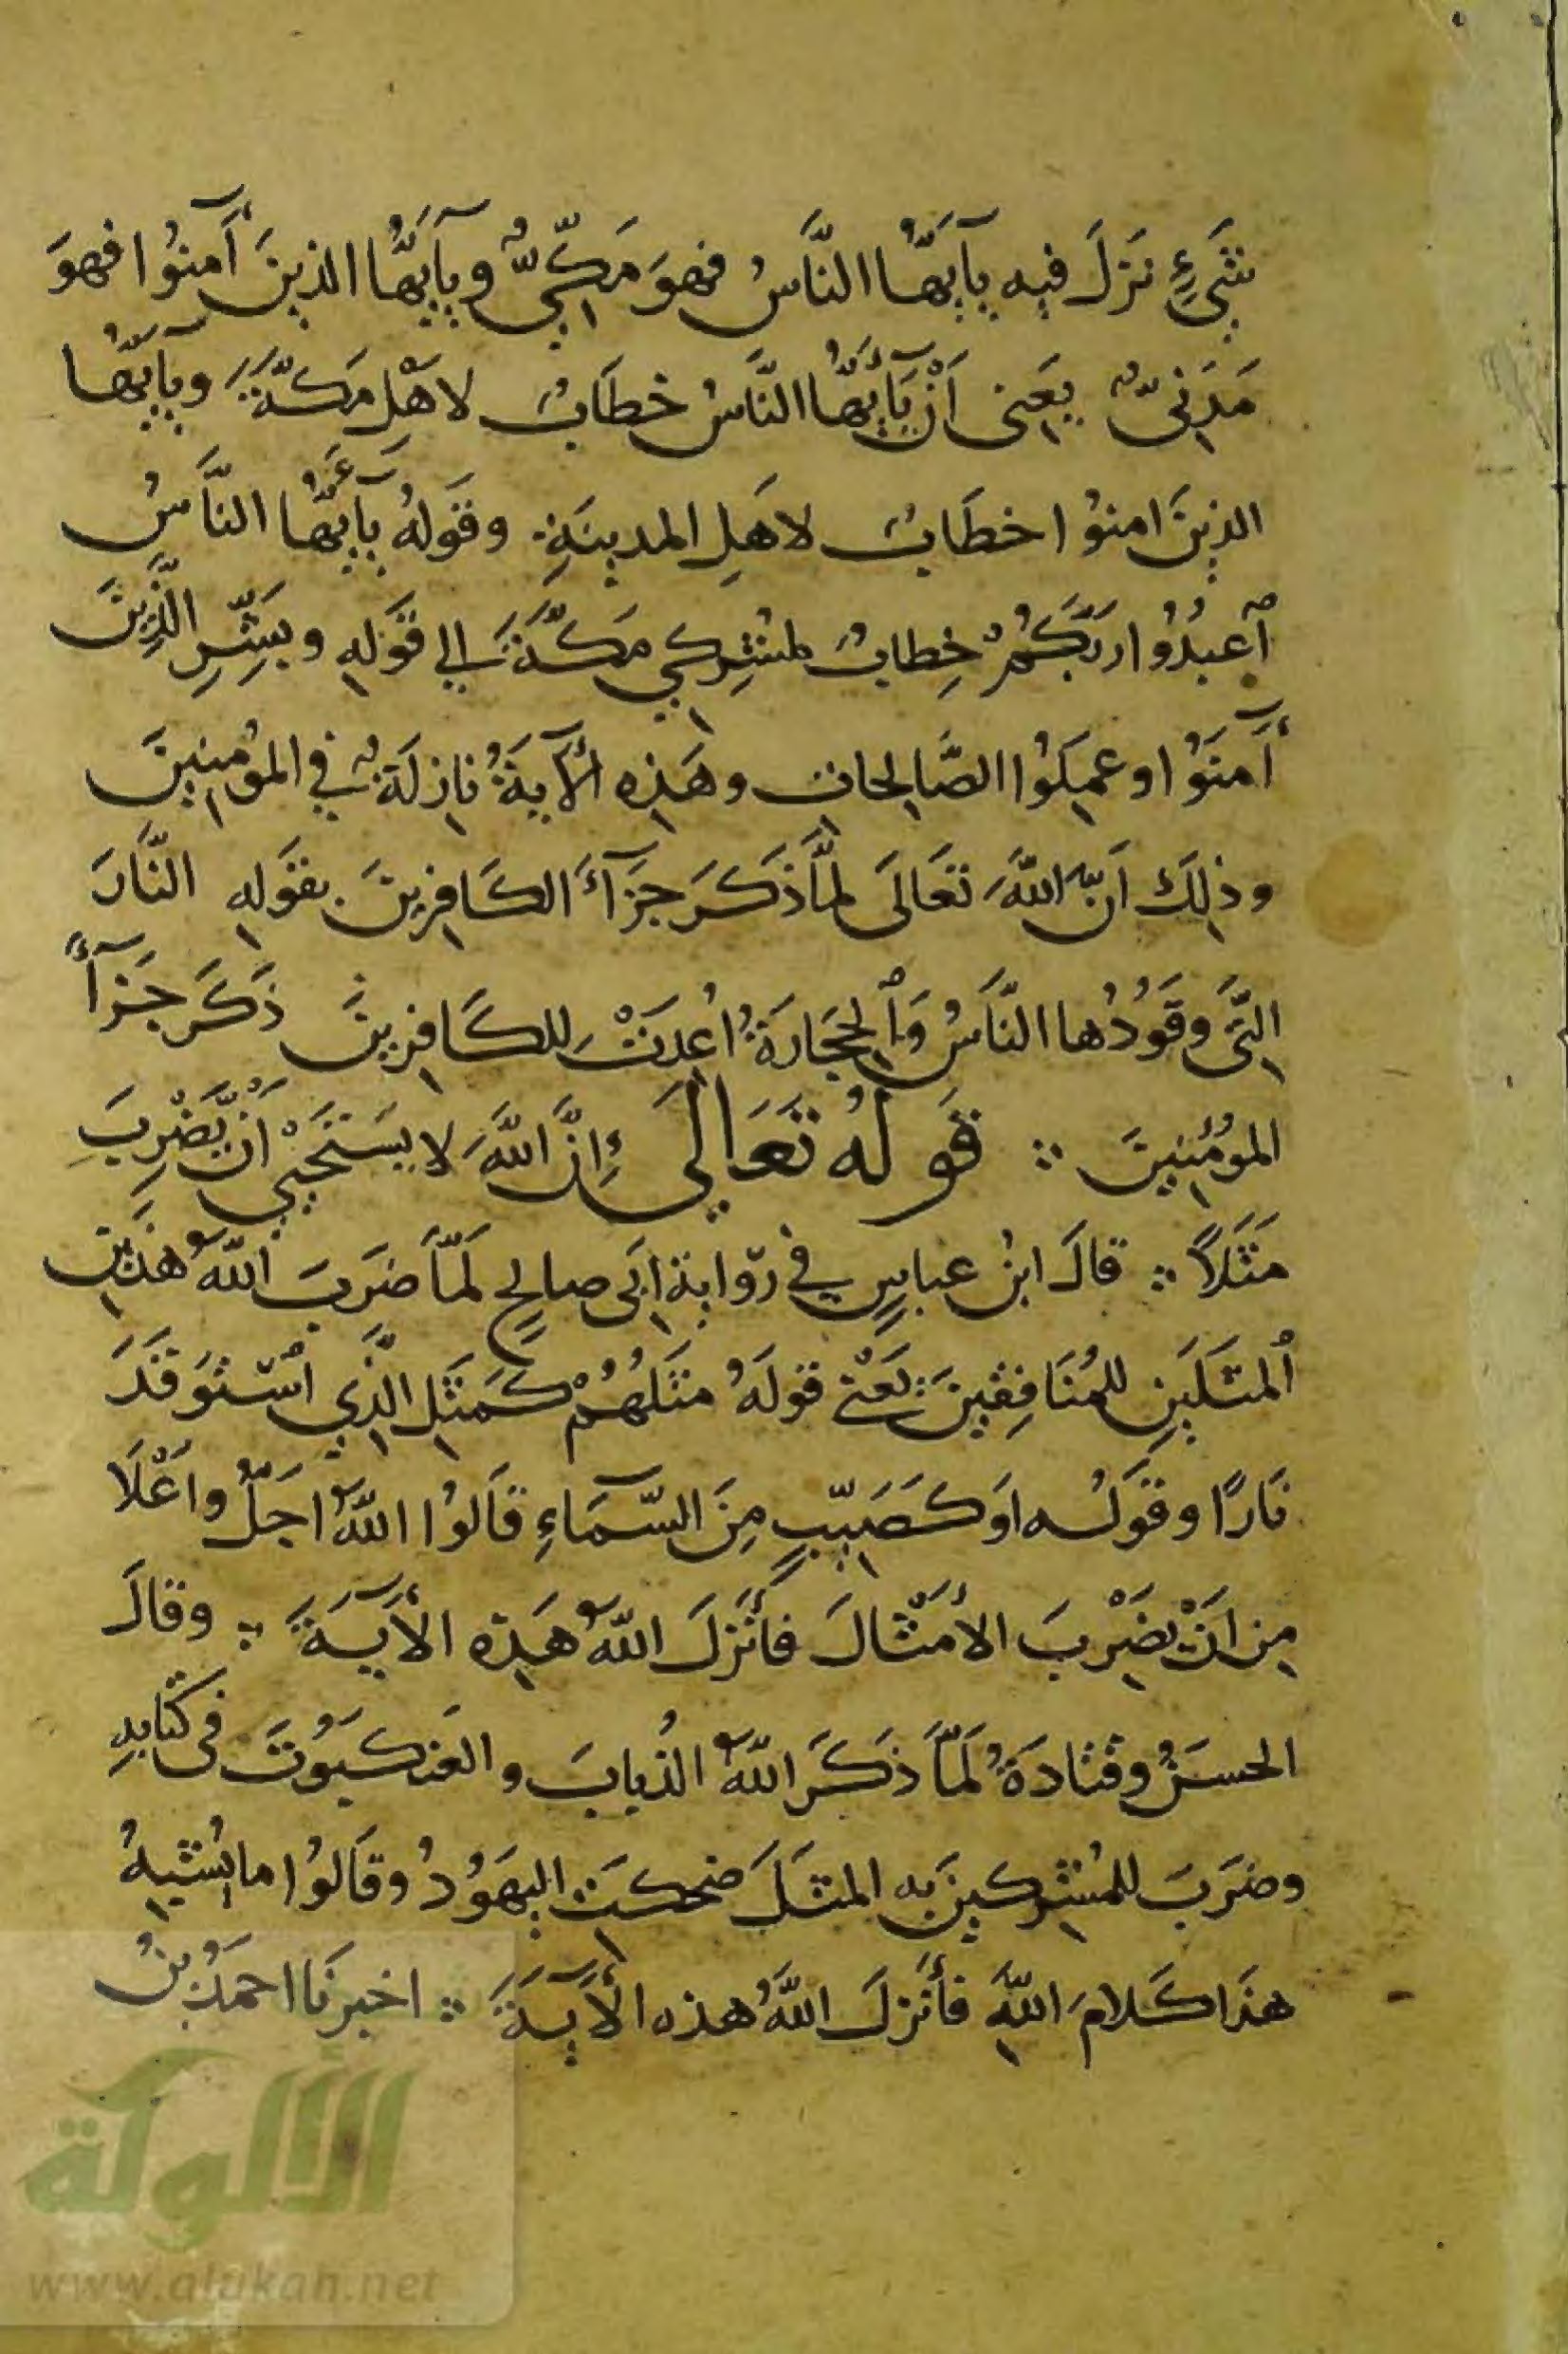 شَيْءٍ نَزَلَ فيه يآ اَيُّهَا النَّاسُ فهوَ مَكِّيٌّ ويآ اَيُّها الذينَ آمنُوا فهوَ
مَدَنيٌّ يعَني اَنْ يَآ اَيُّها النَّاسُ خطَابٌ لاَهْلِ مَكّةَ ويآ اَيُّها
الذينَ امنوُا خطَابٌ لاهَلِ المدينَةِ ∴ وقَولهُ يآ اَيُّها النَّاسُ
اَعبدُوا رَبَّكُمُ خِطابٌ لمشِركي مَكّةَ الي قَولهِ وبَشِّرِ الَّذِينَ
آمنَوُا وعمِلَوُا الصَّالِحاتِ وهَذِه الآيَةُ نازِلَةٌ في المؤمنِينَ
وذلِكَ اَنَّ اللهَ تعَالَى لمَّا ذَكَرَ جزَآءَ الكَافِرِينَ بقوَلهِ النَّارَ
الَّتي وقَوُدُها النَّاسُ وَالحِجَارَةُ اُعِدَتْ لِلكَافِرِينَ ذَكَرَ جَزَآءً
المؤمُنِينَ ∴ قَولهُ تَعَالَى إِنَّ اللهَ لا يسَتَحْيي اَنْ يَّضْرِبَ
مثَلَاً ∴ قالَ ابنُ عباسٍ في رّوايةِ ابَى صالحٍ لَمّاَ ضرَبَ اللّهُ هذَينِ
المثَلَينِ للمُنَافِقينَ ∴ يَعْنى قولَهُ مثَلَهُمُ كَمثَلِ الَّذِي اسْتَوقَدَ
نارًا وقوَلُه اوَ كَصَيّبٍ مِنَ السّمَآءِ قاَلوُا اللّهُ اجَلُّ واَعْلَا
مِن اَنْ يضَرْبَ الاَمْثالَ فأَنَزلَ اللّهُ هَذِه الآيَةَ ∴ وقالَ
الحسَنُ وقتَادَةُ لَمّاَ ذكَرَ اللّهُ الذُبابَ والعَنكَبوُتَ فى كتَابهِ
وضرَبَ للمُشِركينَ به المثَلَ ضحكَتِ اليهَوُدُ وقاَلوُا ما يُشبِهُ
هذَا كَلامَ اللّهِ فأَنَزلَ اللّهُ هذه الآيَةَ ∴ اخبرنَا احمَدُ بنُ
الألوكة
www.alukah.net